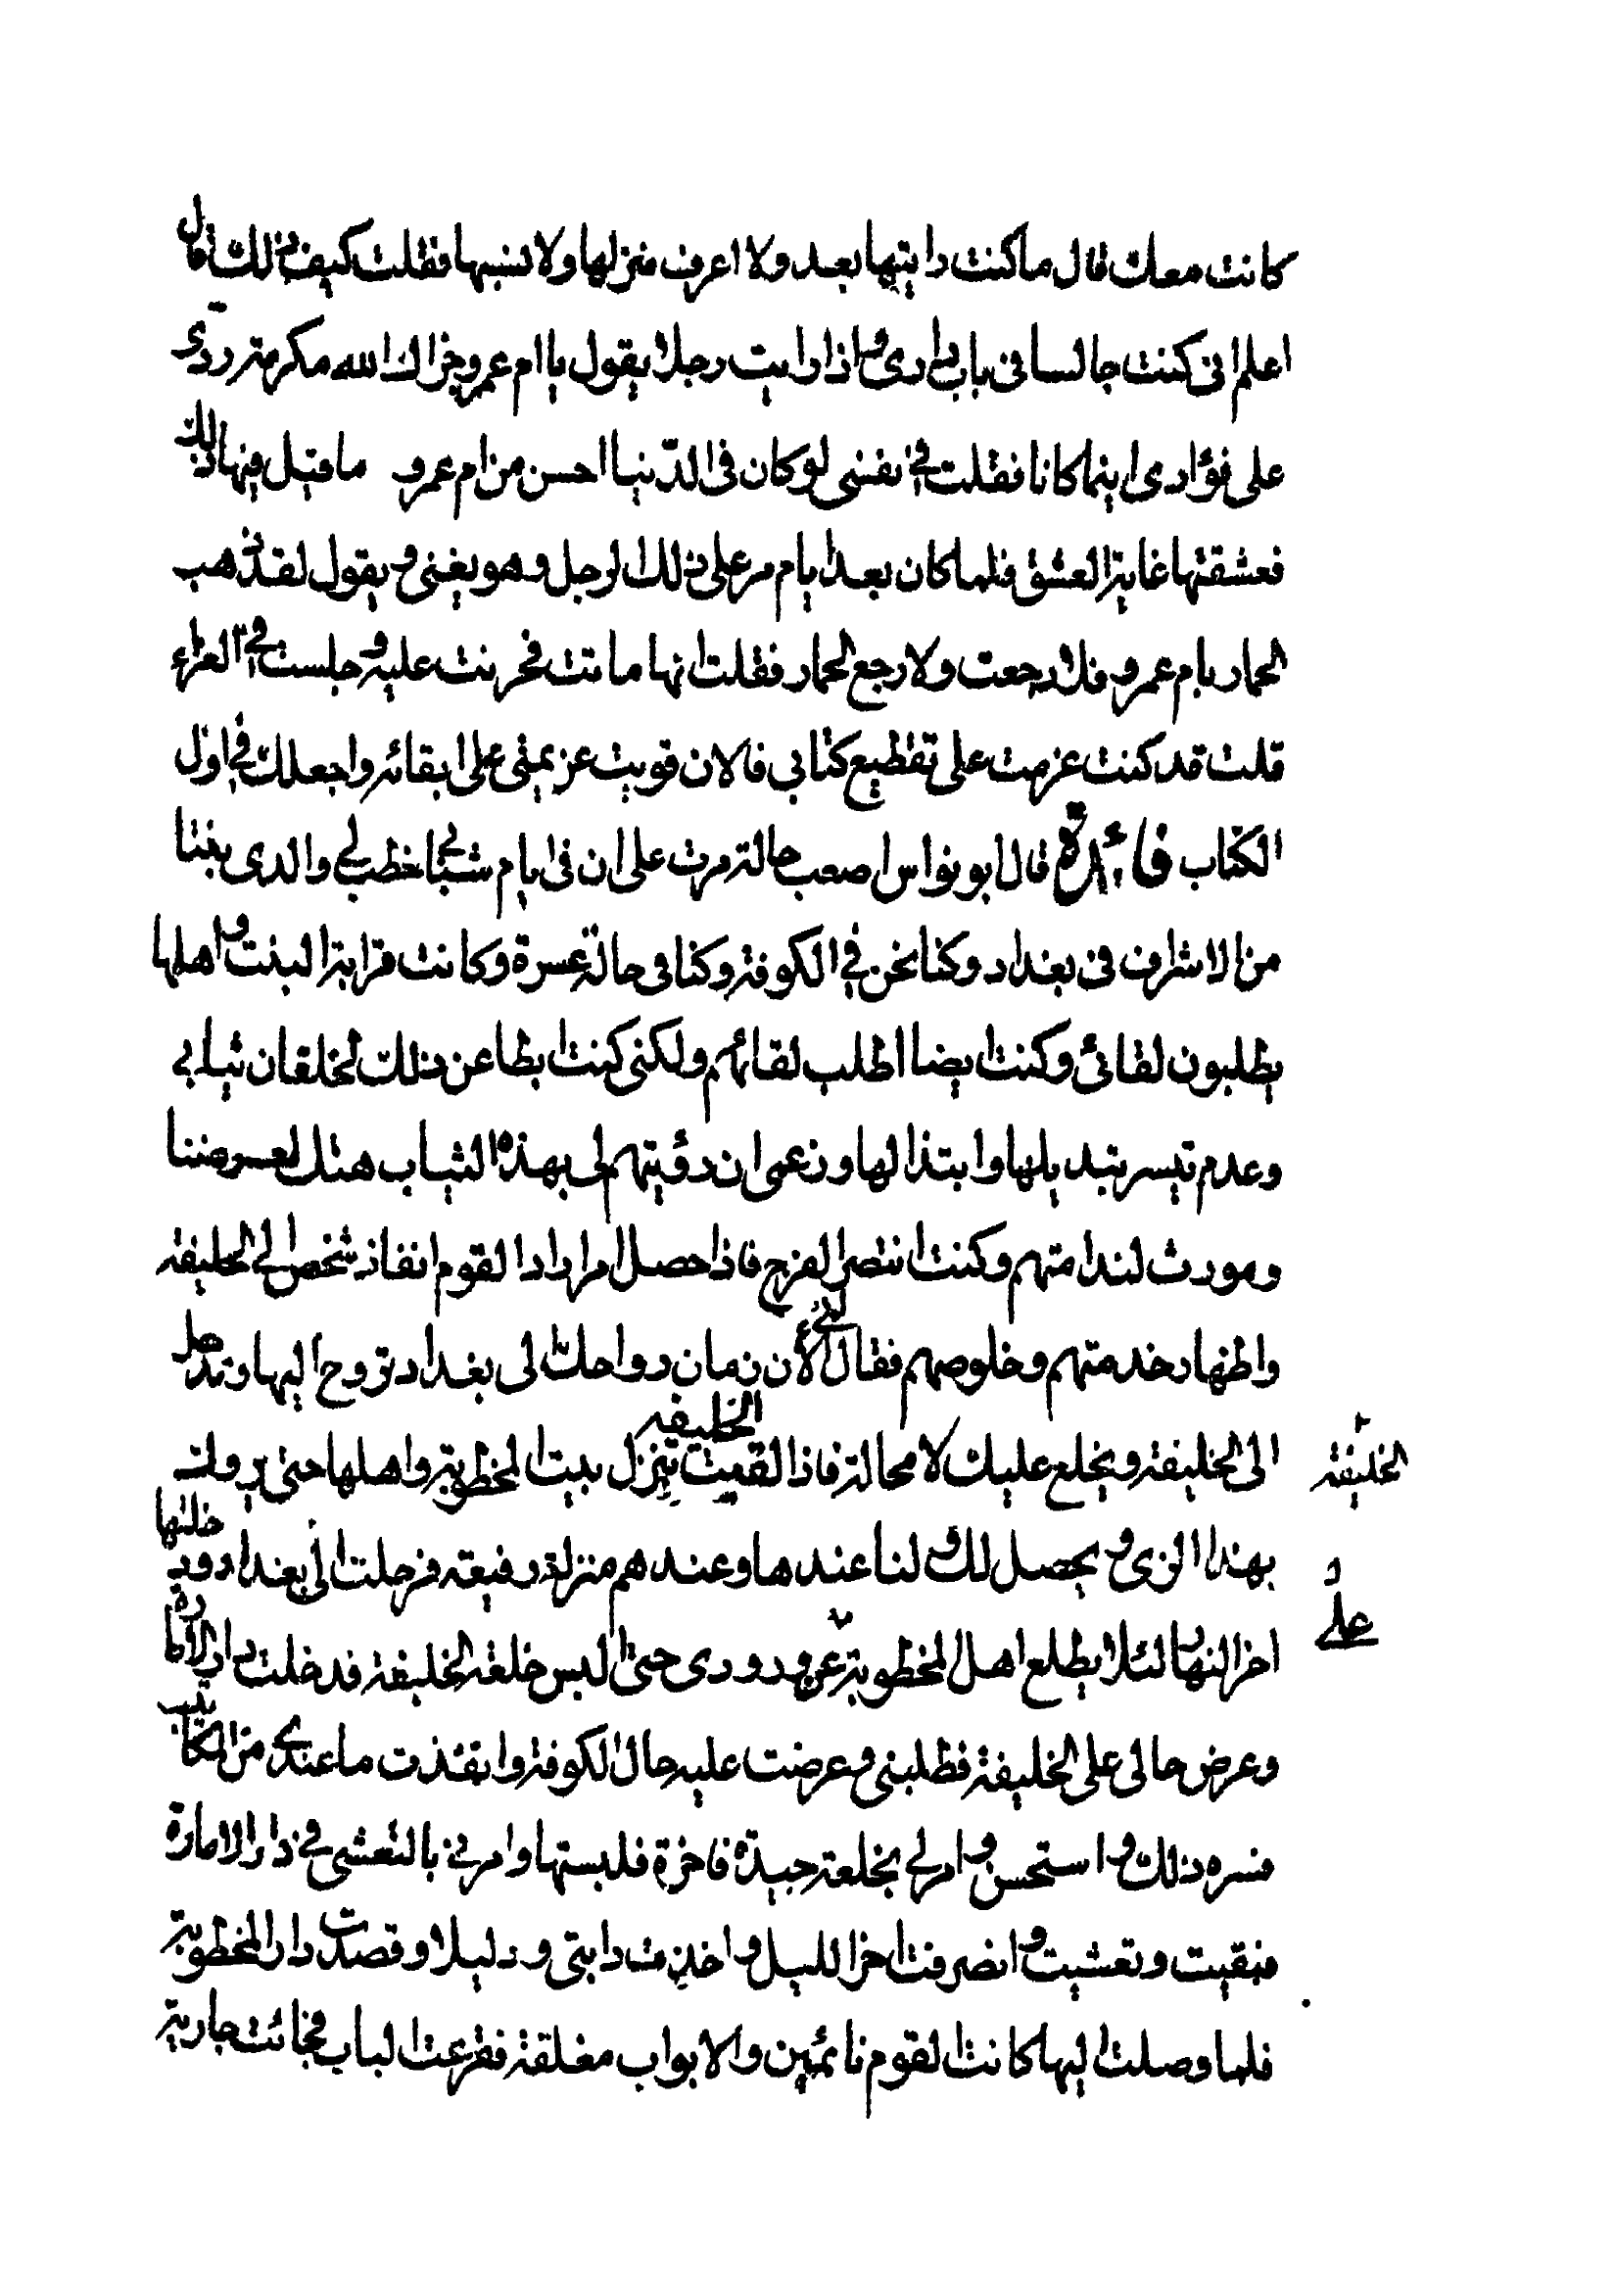 كانت معك قال ما كنت رايتها بعد ولا اعرف منزلها ولا نسبها فقلت كيف ذلك قال
اعلم اني كنت جالسا في باب داري و اذا رايت رجلا يقول يا ام عمرو جزاك الله مكرمة ردي
على فؤادي اينما كانا فقلت في نفسي لو كان في الدنيا احسن من ام عمرو ما قيل فيها ذلك
فعشقتها غاية العشق فلما كان بعد ايام مر على ذلك الرجل وهو يغني و يقول لقد ذهب
الحمار بام عمرو فلا رجعت ولا رجع الحمار فقلت انها ماتت فحزنت عليه و جلست في العزاء
قلت قد كنت عزمت على تقطيع كتابي فالان قويت عزيمتي على ابقائه واجعلك في اول
الكتاب فائدة قال ابو نواس اصعب حالة مرت على ان في ايام شبابي خطب لي والدي بنتا
من الاشراف في بغداد وكنا نحن في الكوفة وكنا في حالة عسرة وكانت قرابة البنت و اهلها
يطلبون لقائي وكنت ايضا اطلب لقائهم ولكني كنت ابطا عن ذلك لخلقان ثيابي
وعدم تيسر تبديلها وابتذالها وزعمي ان رؤيتهم لي بهذه الثياب هتك لعرضنا
ومورث لندامتهم وكنت انتظر الفرج فاذا حصل امر اراد القوم انفاذ شخص الى الخليفة
واظهار خدمتهم وخلوصهم فقال لي الأن زمان رواحك الى بغداد تروح اليها وتدخل
الى الخليفة ويخلع عليك لا محالة فاذا لقيت الخليفة تنزل بيت المخطوبة واهلها حتى يروك
الخليفة
بهذا الزي و يحصل لك و لنا عندها وعندهم منزلة رفيعة فرحلت الى بغداد ودخلتها
اخر النهار لئلا يطلع اهل المخطوبة على ورودي حتى البس خلعة الخليفة فدخلت دار الامارة
على
وعرض حالي على الخليفة فطلبني و عرضت عليه حال الكوفة وانفذت ما عندي من المكاتيب
فسره ذلك و استحسن و امر لي بخلعة جيدة فاخرة فلبستها وامرني بالتعشي في دار الامارة
فبقيت وتعشيت و انصرفت اخر الليل و اخذت دابتي و دليلا وقصدت دار المخطوبة
فلما وصلت اليها كانت القوم نائمين والابواب مغلقة فقرعت الباب فجائت جارية